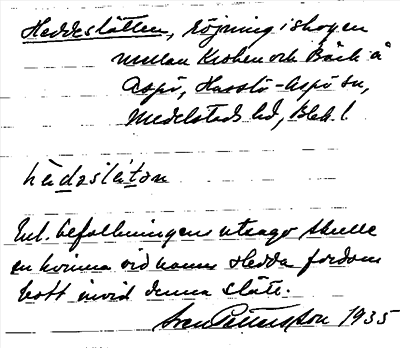 Heddeslätten, röjning i skogen
mellan Kroken och Bäck å
Aspö, Hasslö-Aspö sn,
Medelstads hd, Blek. l.
hèdaslétǝn
Enl. befolkningens utsago skulle
en kvinna vid namn Hedda fordom
bott invid denna slätt.
Sven Pettersson 1935